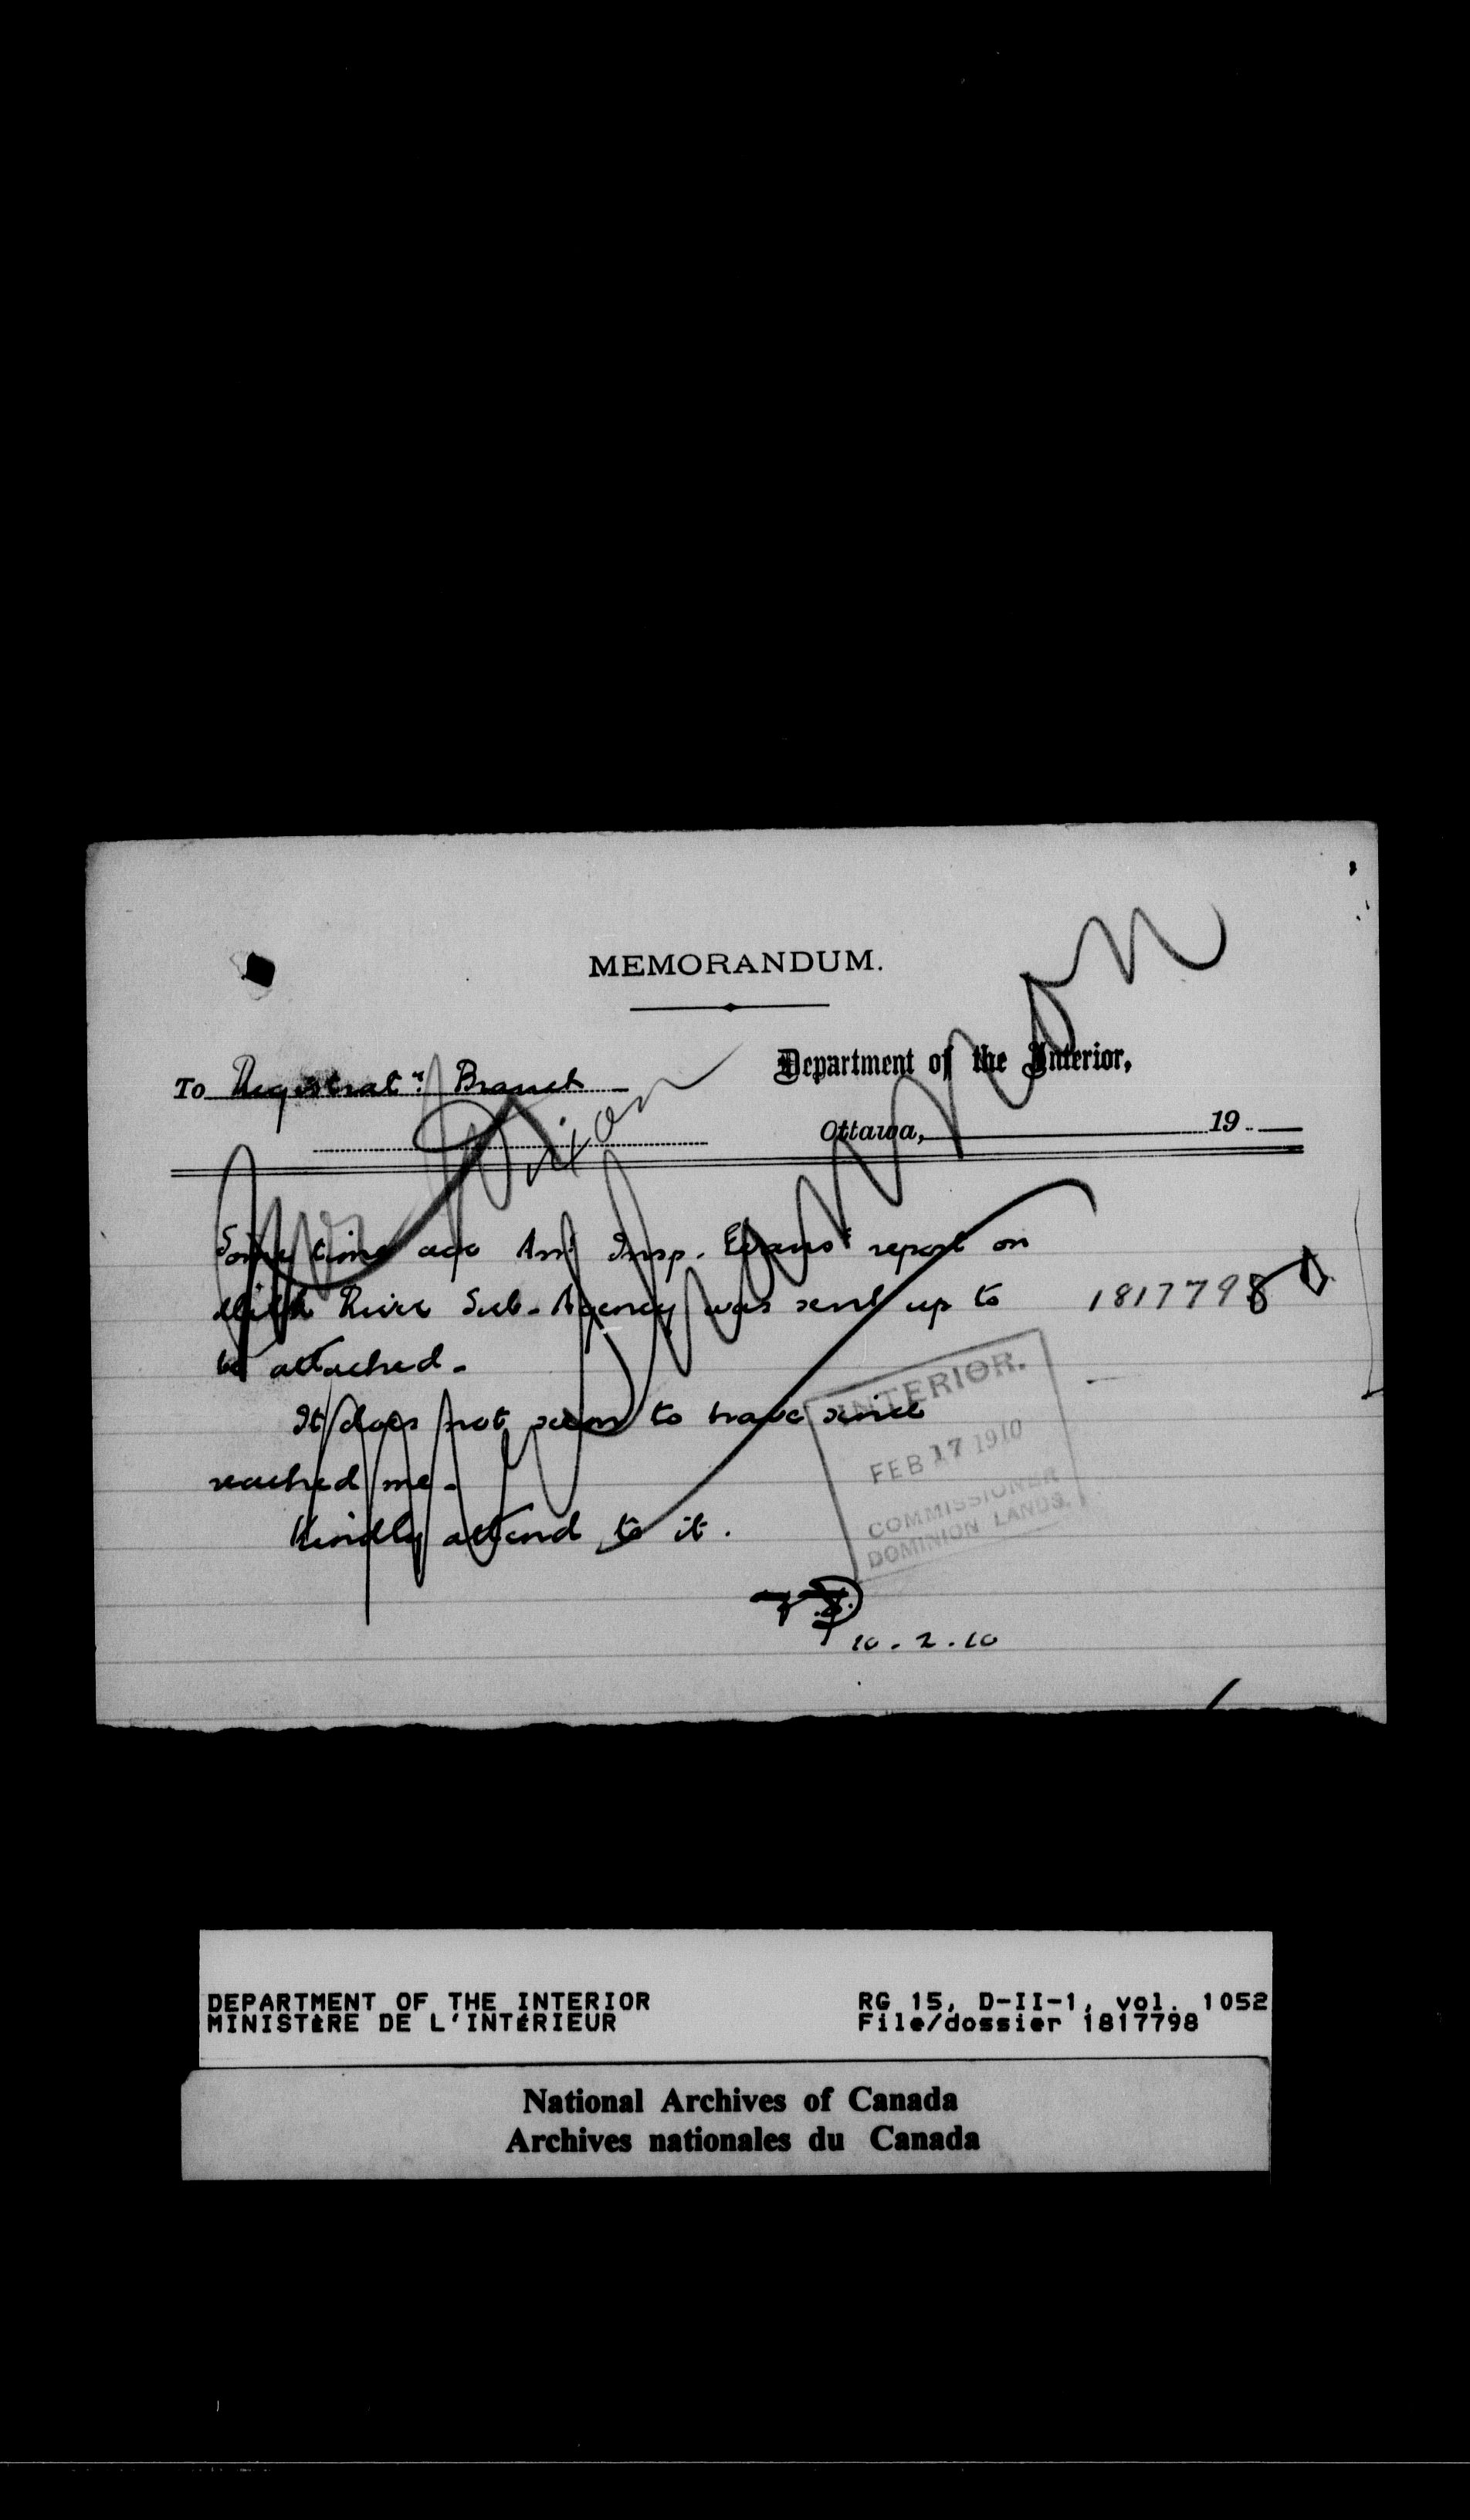 MEMORANDUM.
Department of the Interior,
To Registratn. Branch
Ottawa, 19
Dixon
Some time ago Asst Insp. Evans' report on
Milk River Sub-Agency was sent up to 1817798
be attached.
It does not seem to have since
reached me.
Kindly attend to it.
INTERIOR.
FEB 17 1910
COMMISSIONER
DOMINION LANDS.
10.2.10
DEPARTMENT OF THE INTERIOR RG 15, D-II-1, vol. 1052
MINISTÈRE DE L'INTÉRIEUR File/dossier 1817798
National Archives of Canada
Archives nationales du Canada